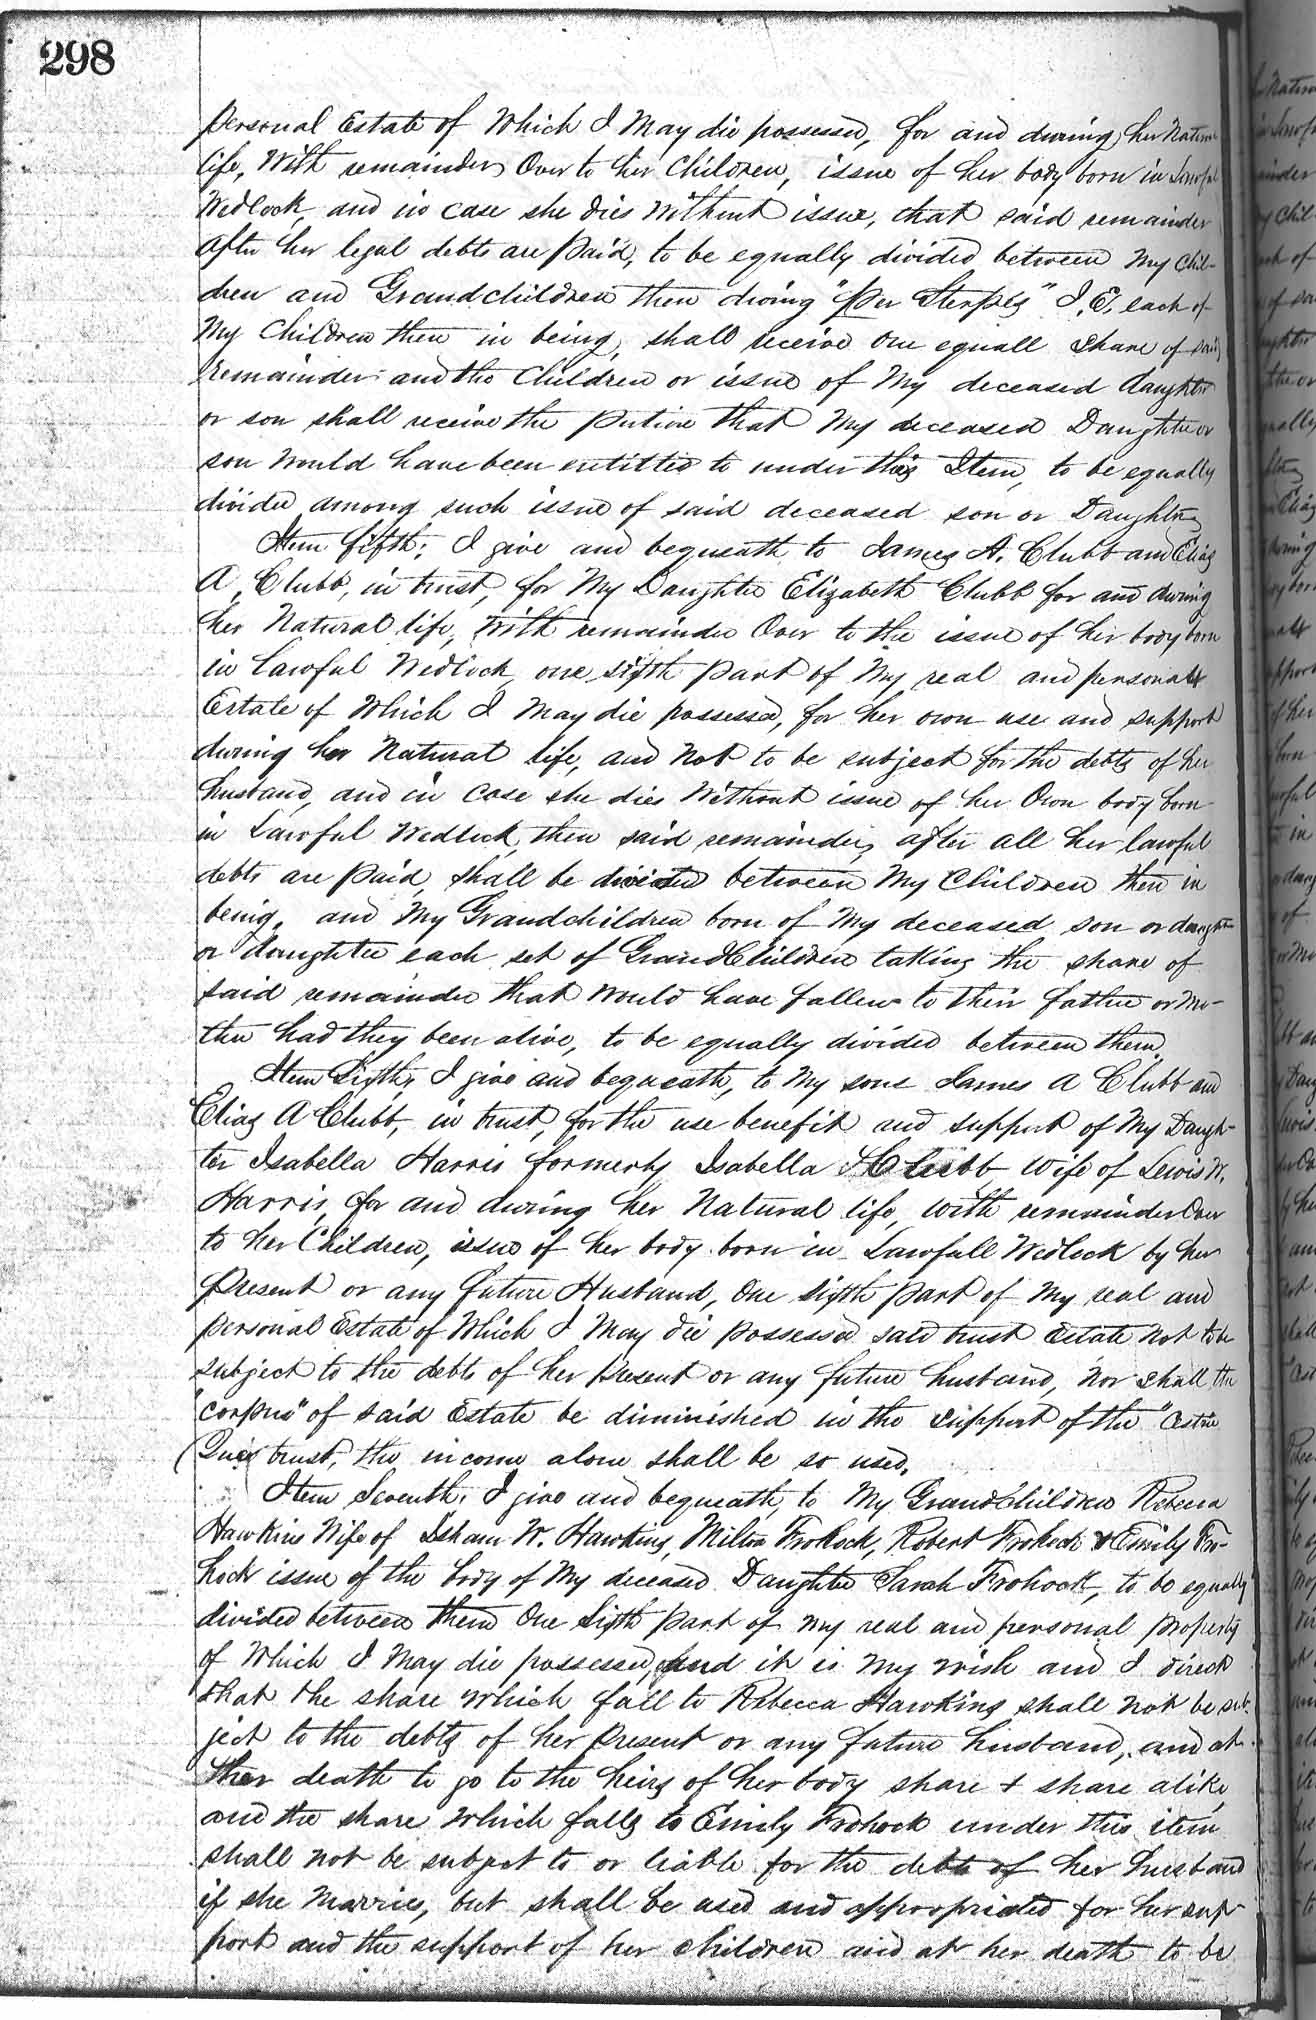 298
personal Estate of Which I May die possessed, for and during her Natural
life, With remainder Over to her Children, issue of her body born in Lawful
Wedlock, and in case she dies Without issue, that said remainder
after her legal debts are paid, to be equally divided between My Chil-
dren and Grandchildren then living "Per Sterpes" I.E. each of
My Children then in being, shall receive One equall share of said
remainder and the Children or issue of My deceased daughter
or son shall receive the portion that My deceased Daughter or
son Would have been entitled to under this Item, to be equally
divided among such issue of said deceased son or Daughter
Item fifth; I give and bequeath to James A. Clubb and Elias
A. Clubb, in trust, for My Daughter Elizabeth Clubb for and during
her Natural life, With remainder Over to the issue of her body born
in Lawful Wedlock, one sixth part of My real and personal
Estate of Which I May die possessed, for her own use and support
during her Natural life, and Not to be subject for the debts of her
husband, and in case she dies Without issue of her Own body born
in Lawful Wedlock, then said remainder, after all her lawful
debts are paid, shall be divided between My Children then in
being, and My Grandchildren born of My deceased son or daughter
or daughter each set of GrandChildren taking the share of
said remainder that Would have fallen to their father or Mo-
ther had they been alive, to be equally divided between them.
Item Sixth, I give and bequeath, to My sons James A Clubb and
Elias A Clubb, in trust, for the use benefit and support of My Daugh-
ter Isabella Harris formerly Isabella Clubb Wife of Lewis W.
Harris, for and during her Natural life, With remainder Over
to her Children, issue of her body born in Lawfull Wedlock by her
Present or any future Husband, One sixth part of My real and
personal Estate of Which I May die possessed said trust Estate Not to be
subject to the debts of her present or any future husband, Nor shall the
"corpus" of said Estate be diminished in the support of the "Cestui
Que trust, the income alone shall be so used.
Item Seventh. I give and bequeath, to My GrandChildren Rebecca
Hawkins Wife of Isham W. Hawkins, Milton Frohock, Robert Frohock & Emily Fro-
hock issue of the body of My deceased Daughter Sarah Frohock, to be equally
divided between them One Sixth part of my real and personal property
of Which I May die possessed, And it is my wish and I direct
that the share which fall to Rebecca Hawkins shall not be sub-
ject to the debts of her present or any future husband, and at
her death to go to the heirs of her body share & share alike,
and the share Which falls to Emily Frohock under this item
shall not be subject to or liable for the debts of her husband
if she Marries, but shall be used and appropriated for her sup-
port and the support of her children and at her death to be